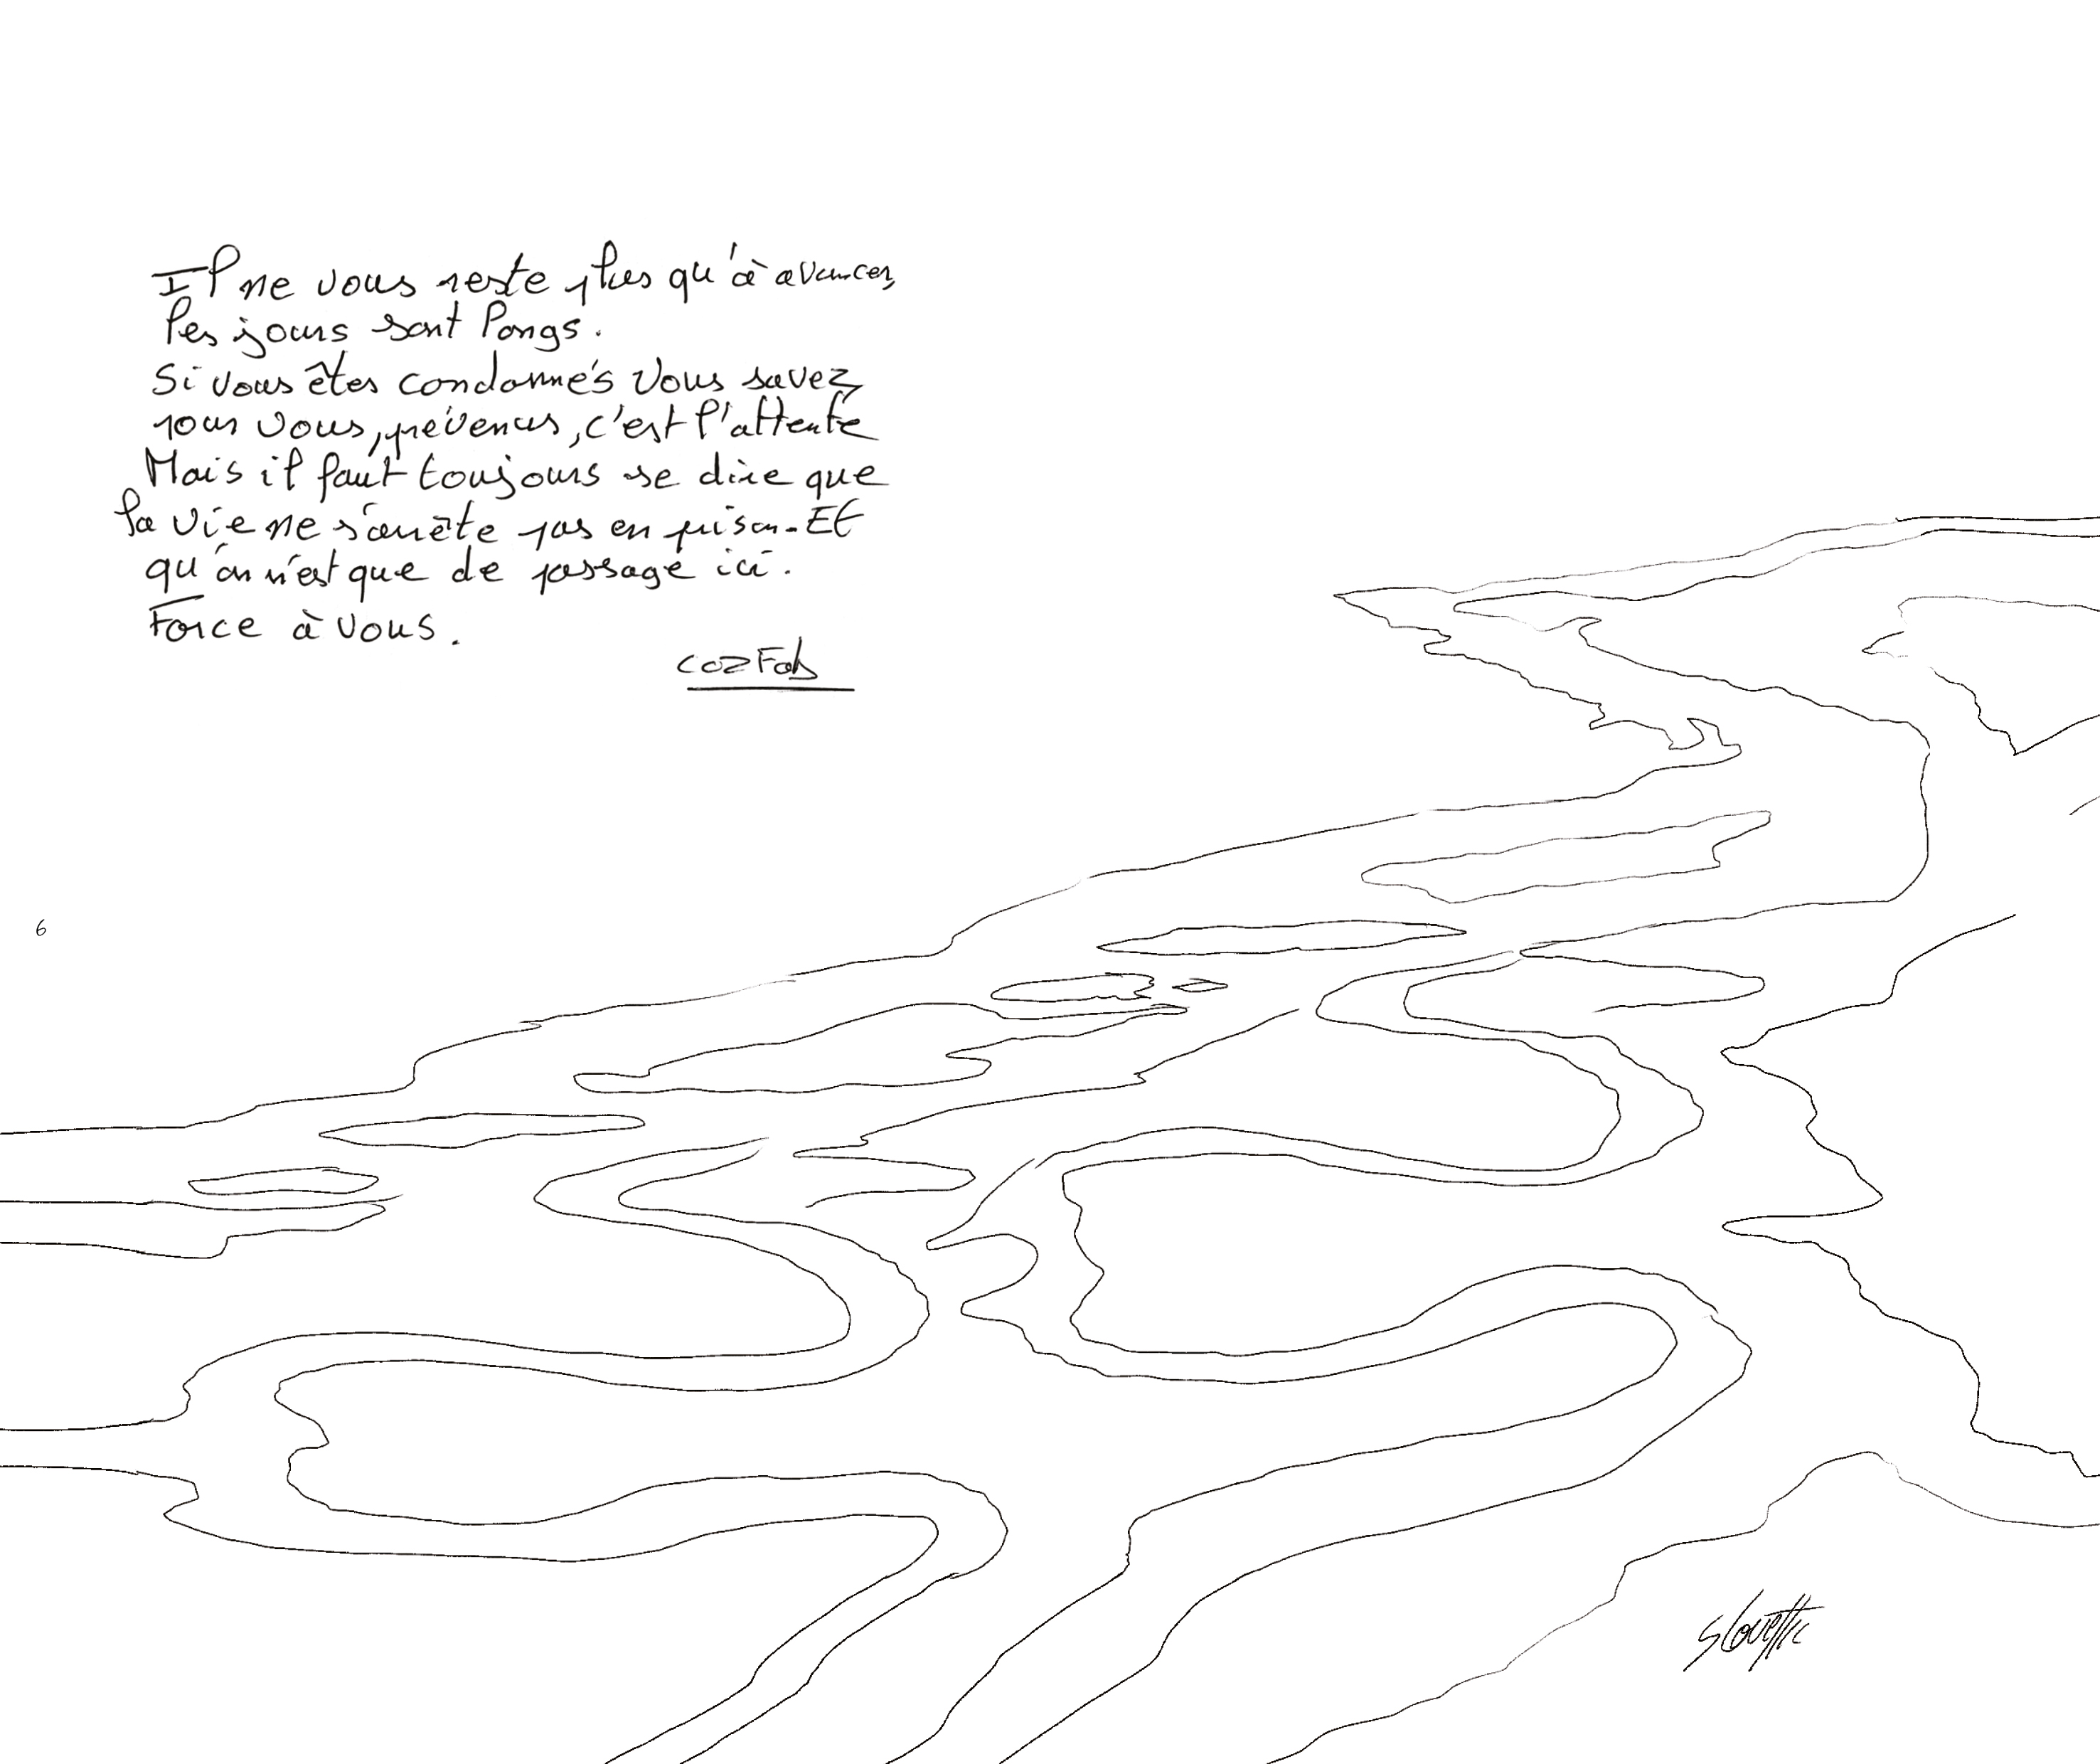 Il ne vous reste plus qu'à avancer,
les jours sont longs.
Si vous êtes condamnés vous savez,
pour vous, prévenus, c'est l'attente
Mais il faut toujours se dire que
la vie ne s'arrête pas en prison. Et
qu'on n'est que de passage ici.
Force à vous.
COZFab
6